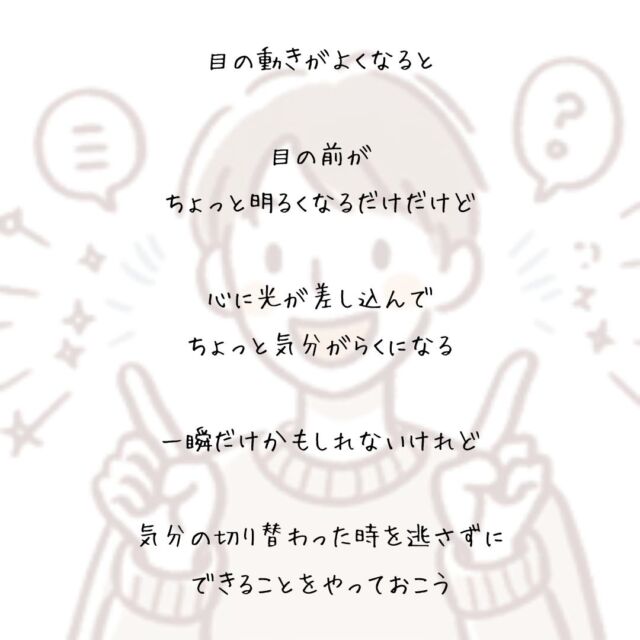 目の動きがよくなると
目の前が
ちょっと明るくなるだけだけど
心に光が差し込んで
ちょっと気分がらくになる
一瞬だけかもしれないけれど
気分の切り替わった時を逃さずに
できることをやっておこう
?